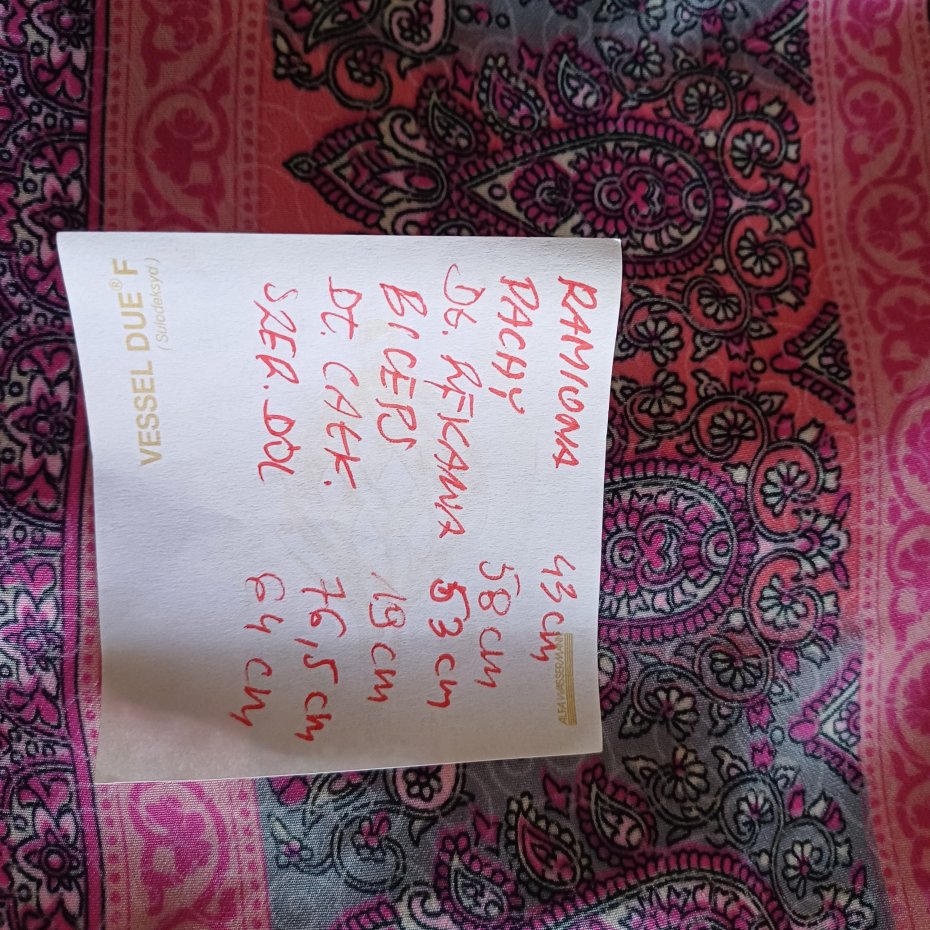 RAMIONA 43 cm
PACHY 58 cm
DŁ. RĘKAWA 53 cm
BICEPS 19 cm
DŁ. CAŁK. 76,5 cm
SZER. DÓŁ 64 cm
VESSEL DUE® F
(Sulodeksyd)
ALFA WASSERMANN